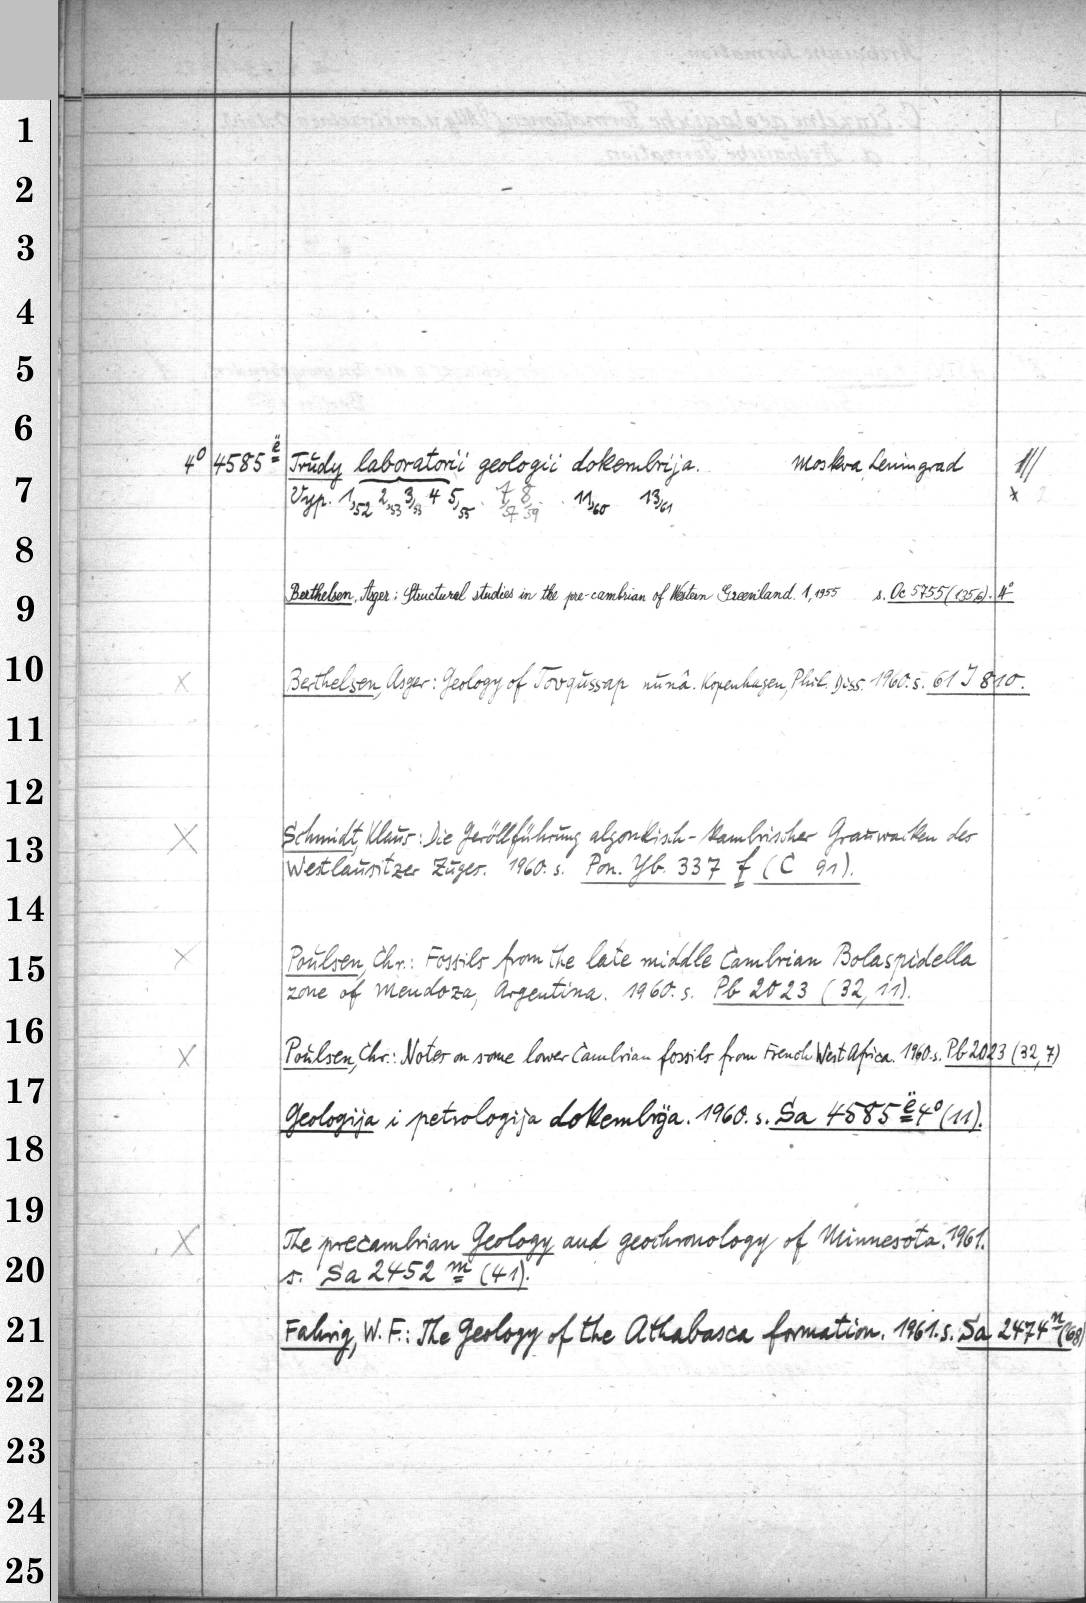 1
2
3
4
5
6
4⁰ 4585 ë Trudy laboratorii geologii dokembrija. Moskva, Leningrad
7
Vyp. 1,52 2,53 3,53 4 5,55 7,57 8,59 11,60 13,61 x
8
9
Berthelsen, Asger: Structural studies in the pre-cambrian of Western Greenland. 1, 1955 s. Oc 5755 (135,6). 4⁰
10
x Berthelsen, Asger: Geology of Tovqussap nunâ. Kopenhagen, Phil. Diss. 1960. s. 61 J 810.
11
12
13
x Schmidt, Klaus: Die Geröllführung algonkisch-kambrischer Grauwacken des
Westlausitzer Zuges. 1960. s. Pon. Yb. 337 f (C 91).
14
15
x Poulsen, Chr.: Fossils from the late middle Cambrian Bolaspidella
zone of Mendoza, Argentina. 1960. s. Pb 2023 (32, 11).
16
x Poulsen, Chr.: Notes on some lower Cambrian fossils from French West Africa. 1960. s. Pb 2023 (32, 7)
17
Geologija i petrologija dokembrija. 1960. s. Sa 4585 ë 4⁰ (11).
18
19
x The precambrian Geology and geochronology of Minnesota. 1961.
20
s. Sa 2452 m (41).
21
Fahrig, W. F.: The Geology of the Athabasca formation. 1961. s. Sa 2474 n (68)
22
23
24
25